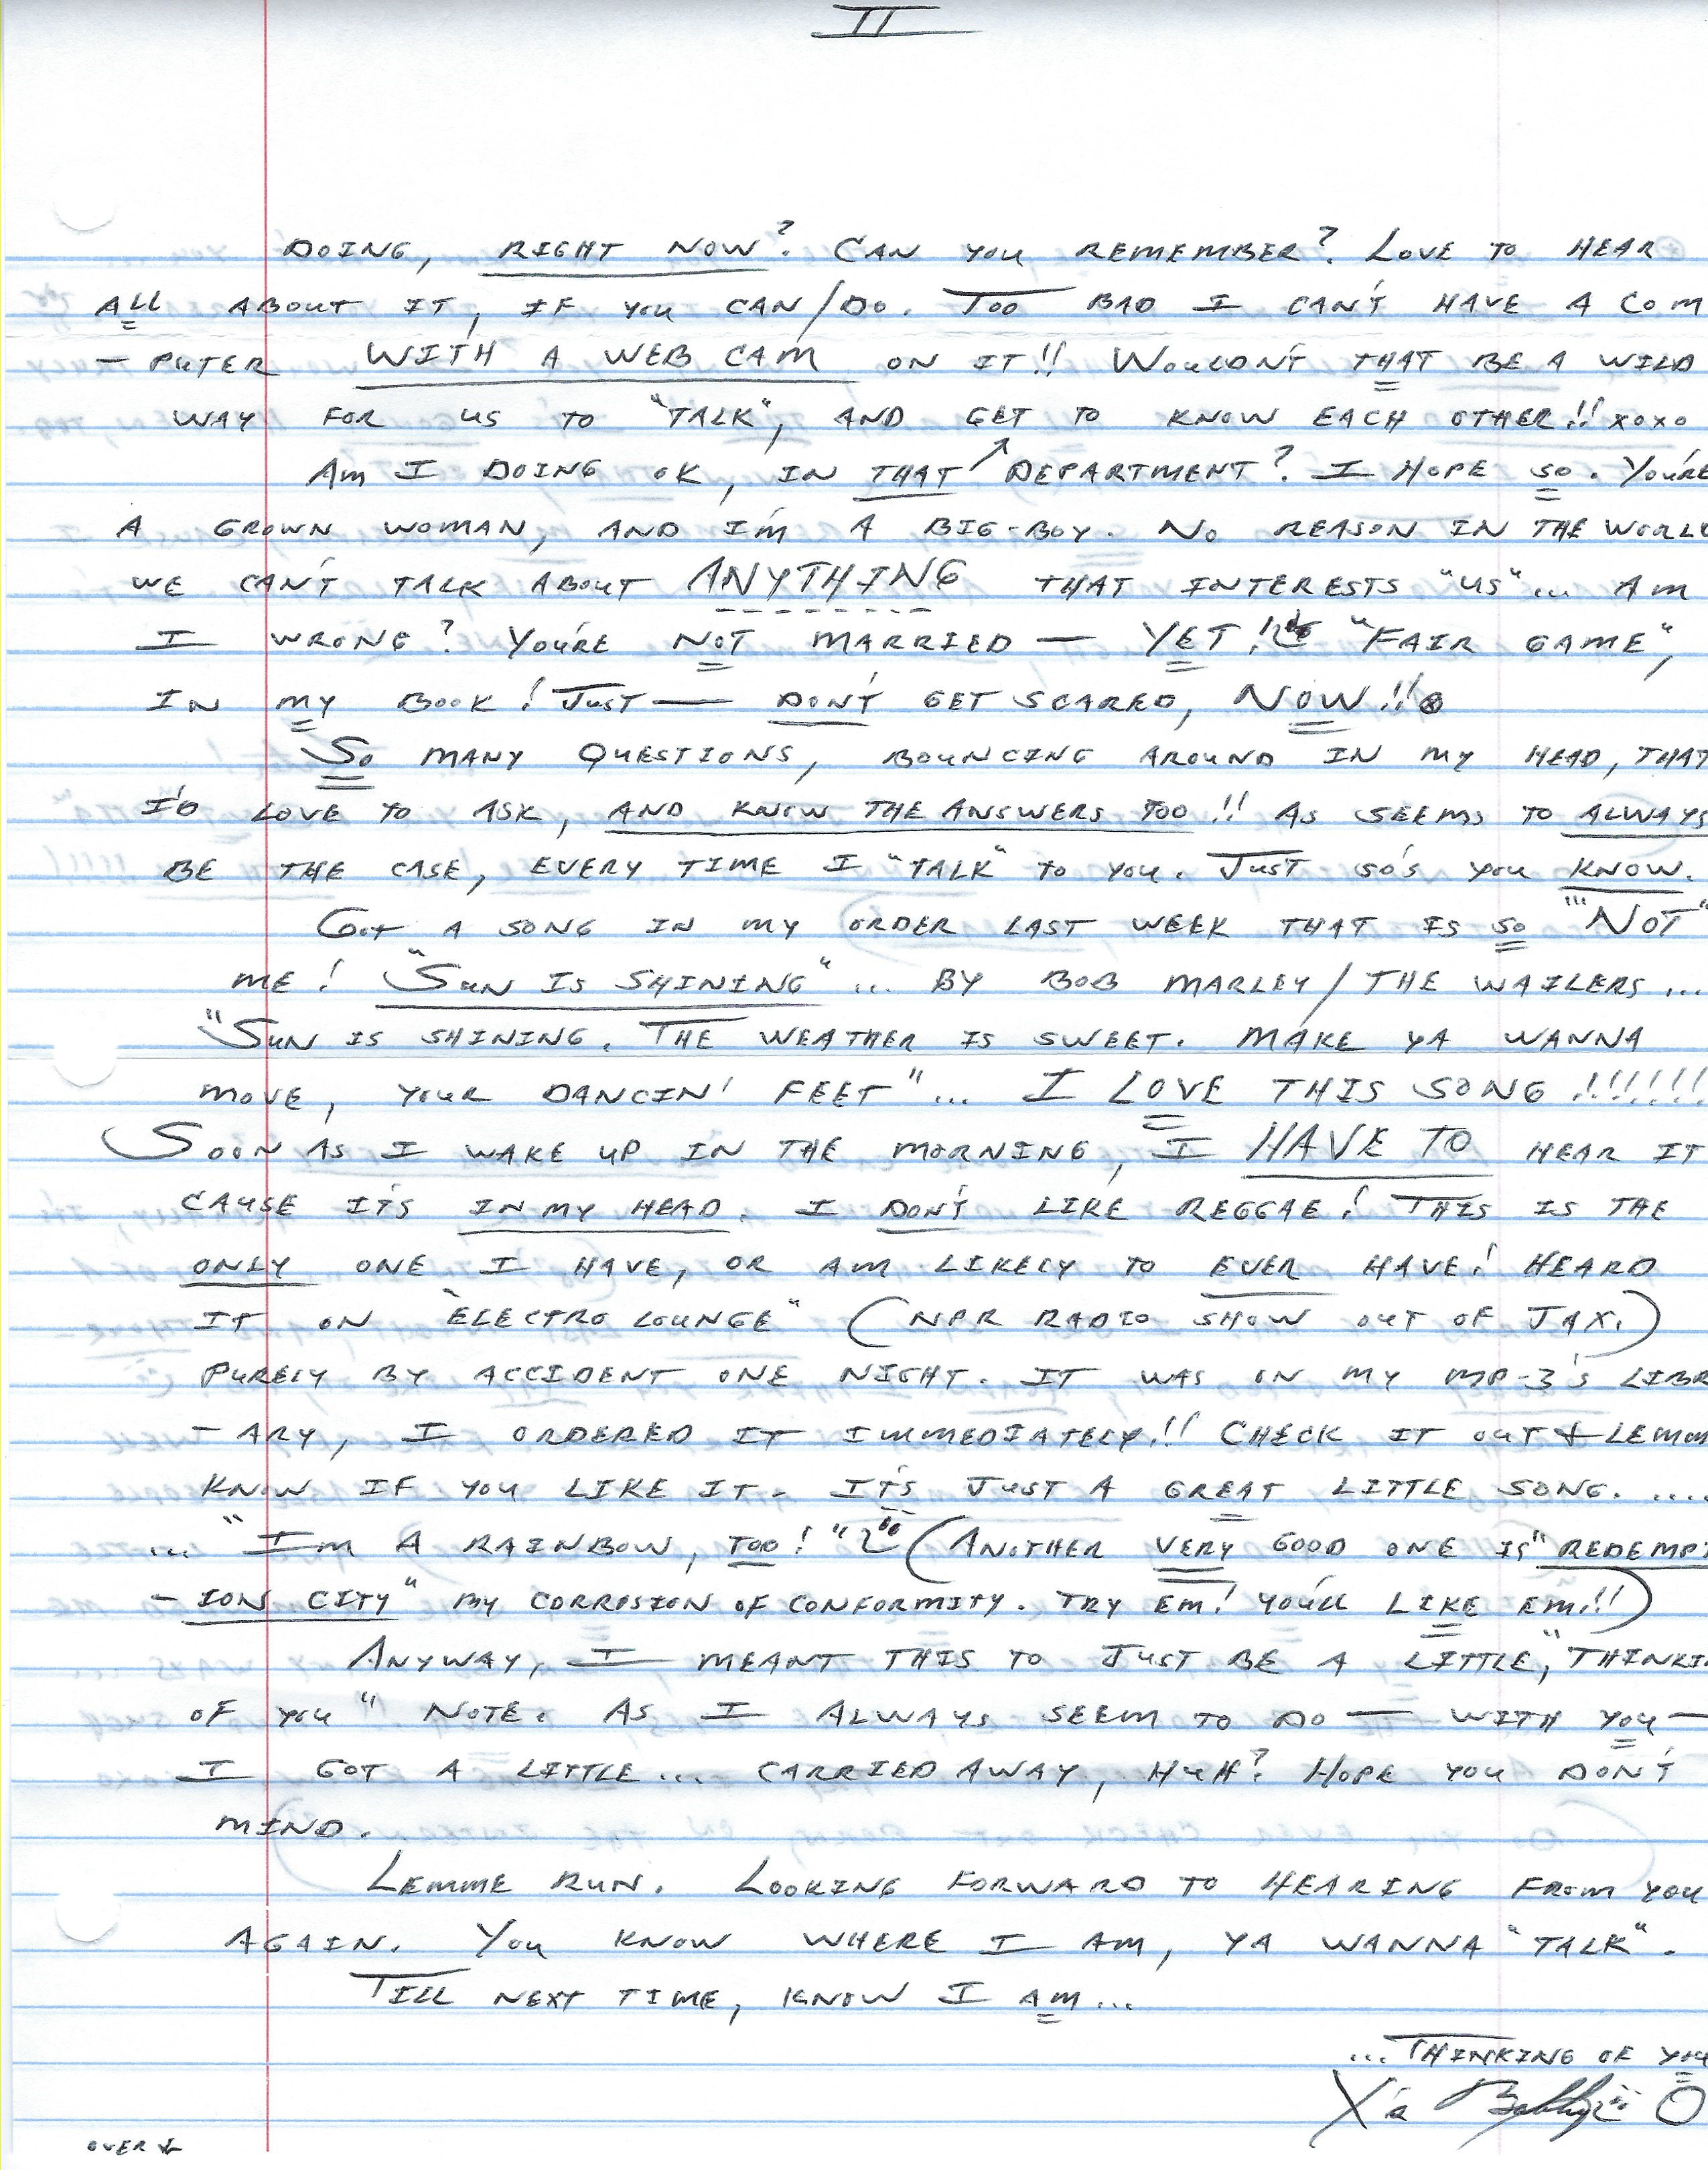 II
DOING, RIGHT NOW? CAN YOU REMEMBER? LOVE TO HEAR
ALL ABOUT IT, IF YOU CAN/DO. TOO BAD I CAN'T HAVE A COM
- PUTER WITH A WEB CAM ON IT!! WOULDN'T THAT BE A WILD
WAY FOR US TO "TALK", AND GET TO KNOW EACH OTHER!! XOXO
AM I DOING OK, IN THAT ↗ DEPARTMENT? I HOPE SO. YOU'RE
A GROWN WOMAN, AND I'M A BIG-BOY. NO REASON IN THE WORLD
WE CAN'T TALK ABOUT ANYTHING THAT INTERESTS "US"... AM
I WRONG? YOU'RE NOT MARRIED — YET! "FAIR GAME",
IN MY BOOK! JUST — DON'T GET SCARED, NOW!!
SO MANY QUESTIONS, BOUNCING AROUND IN MY HEAD, THAT
I'D LOVE TO ASK, AND KNOW THE ANSWERS TOO!! AS SEEMS TO ALWAYS
BE THE CASE, EVERY TIME I "TALK" TO YOU. JUST SO'S YOU KNOW.
GOT A SONG IN MY ORDER LAST WEEK THAT IS SO "NOT"
ME! "SUN IS SHINING"... BY BOB MARLEY/THE WAILERS...
"SUN IS SHINING. THE WEATHER IS SWEET. MAKE YA WANNA
MOVE, YOUR DANCIN' FEET"... I LOVE THIS SONG!!!!!!!
SOON AS I WAKE UP IN THE MORNING, I HAVE TO HEAR IT
CAUSE IT'S IN MY HEAD. I DON'T LIKE REGGAE! THIS IS THE
ONLY ONE I HAVE, OR AM LIKELY TO EVER HAVE! HEARD
IT ON "ELECTRO LOUNGE" (NPR RADIO SHOW OUT OF JAX.)
PURELY BY ACCIDENT ONE NIGHT. IT WAS ON MY MP-3'S LIBR
- ARY, I ORDERED IT IMMEDIATELY!! CHECK IT OUT & LEMM
KNOW IF YOU LIKE IT. IT'S JUST A GREAT LITTLE SONG. ....
... "I'M A RAINBOW, TOO!" (ANOTHER VERY GOOD ONE IS "REDEMPT
- ION CITY" BY CORROSION OF CONFORMITY. TRY EM! YOU'LL LIKE EM!!)
ANYWAY, I MEANT THIS TO JUST BE A LITTLE, "THINKI
OF YOU" NOTE. AS I ALWAYS SEEM TO DO — WITH YOU —
I GOT A LITTLE... CARRIED AWAY, HUH? HOPE YOU DON'T
MIND.
LEMME RUN. LOOKING FORWARD TO HEARING FROM YOU
AGAIN. YOU KNOW WHERE I AM, YA WANNA "TALK".
TILL NEXT TIME, KNOW I AM...
...THINKING OF YOU
Bobby O
OVER ↓